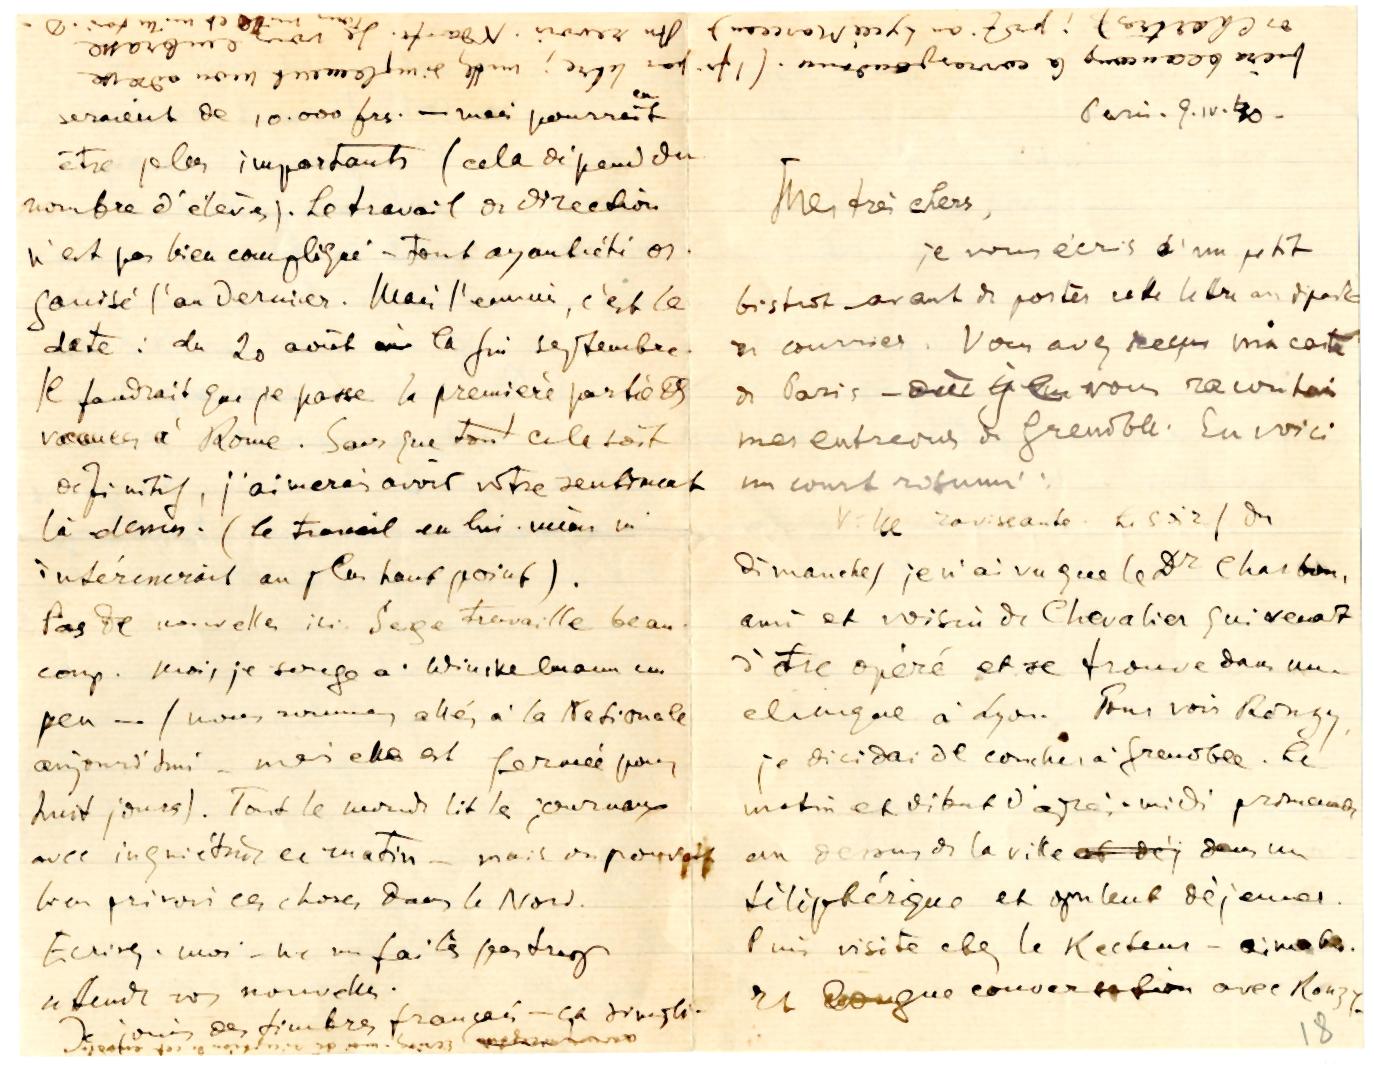 Paris. 9.IV.40 -
Mes très chers,
je vous écris d'un petit
bistrot avant de poster cette lettre au départ
du courrier. Vous avez reçu ma carte
de Paris - où je vous racontai
mes entrevues de Grenoble. En voici
un court résumé :
Ville ravissante. Le soir (du
dimanche) je n'ai vu que le Dr Charbon,
ami et voisin de Chevalier qui venait
d'être opéré et se trouve dans une
clinique à Lyon. Pour voir Ronzy,
je décidai de coucher à Grenoble. Le
matin et début d'après-midi promenade
au dessus de la ville et déj dans un
téléphérique et opulent déjeuner.
Puis visite chez le Recteur - aimable.
Et longue conversation avec Ronzy.
18
seraient de 10.000 frs. - mais pourraient
être plus importants (cela dépend du
nombre d'élèves). Le travail de direction
n'est pas bien compliqué - tout ayant été or-
ganisé l'an dernier. Mais l'ennui, c'est la
date : du 20 août à la fin septembre.
Il faudrait que je passe la première partie des
vacances à Rome. Sans que tout cela soit
définitif, j'aimerais avoir votre sentiment
là dessus. (le travail en lui-même m'
intéresserait au plus haut point).
Pas de nouvelles ici. Serge travaille beau-
coup. Moi, je songe à Winckelmann un
peu - (nous sommes allés à la Nationale
aujourd'hui - mais elle est fermée pour
huit jours). Tout le monde lit les journaux
avec inquiétude ce matin - mais on pouvait
bien prévoir ces choses dans le Nord.
Ecrivez-moi - ne me faites pas trop
attendre vos nouvelles.
Je joins des timbres français - ça simpli-
fiera beaucoup la correspondance. (1 fr. par lettre ; mettez simplement mon adresse
de Chartres) ; prof. au Lycée Marceau)
Au revoir. Je vous embrasse